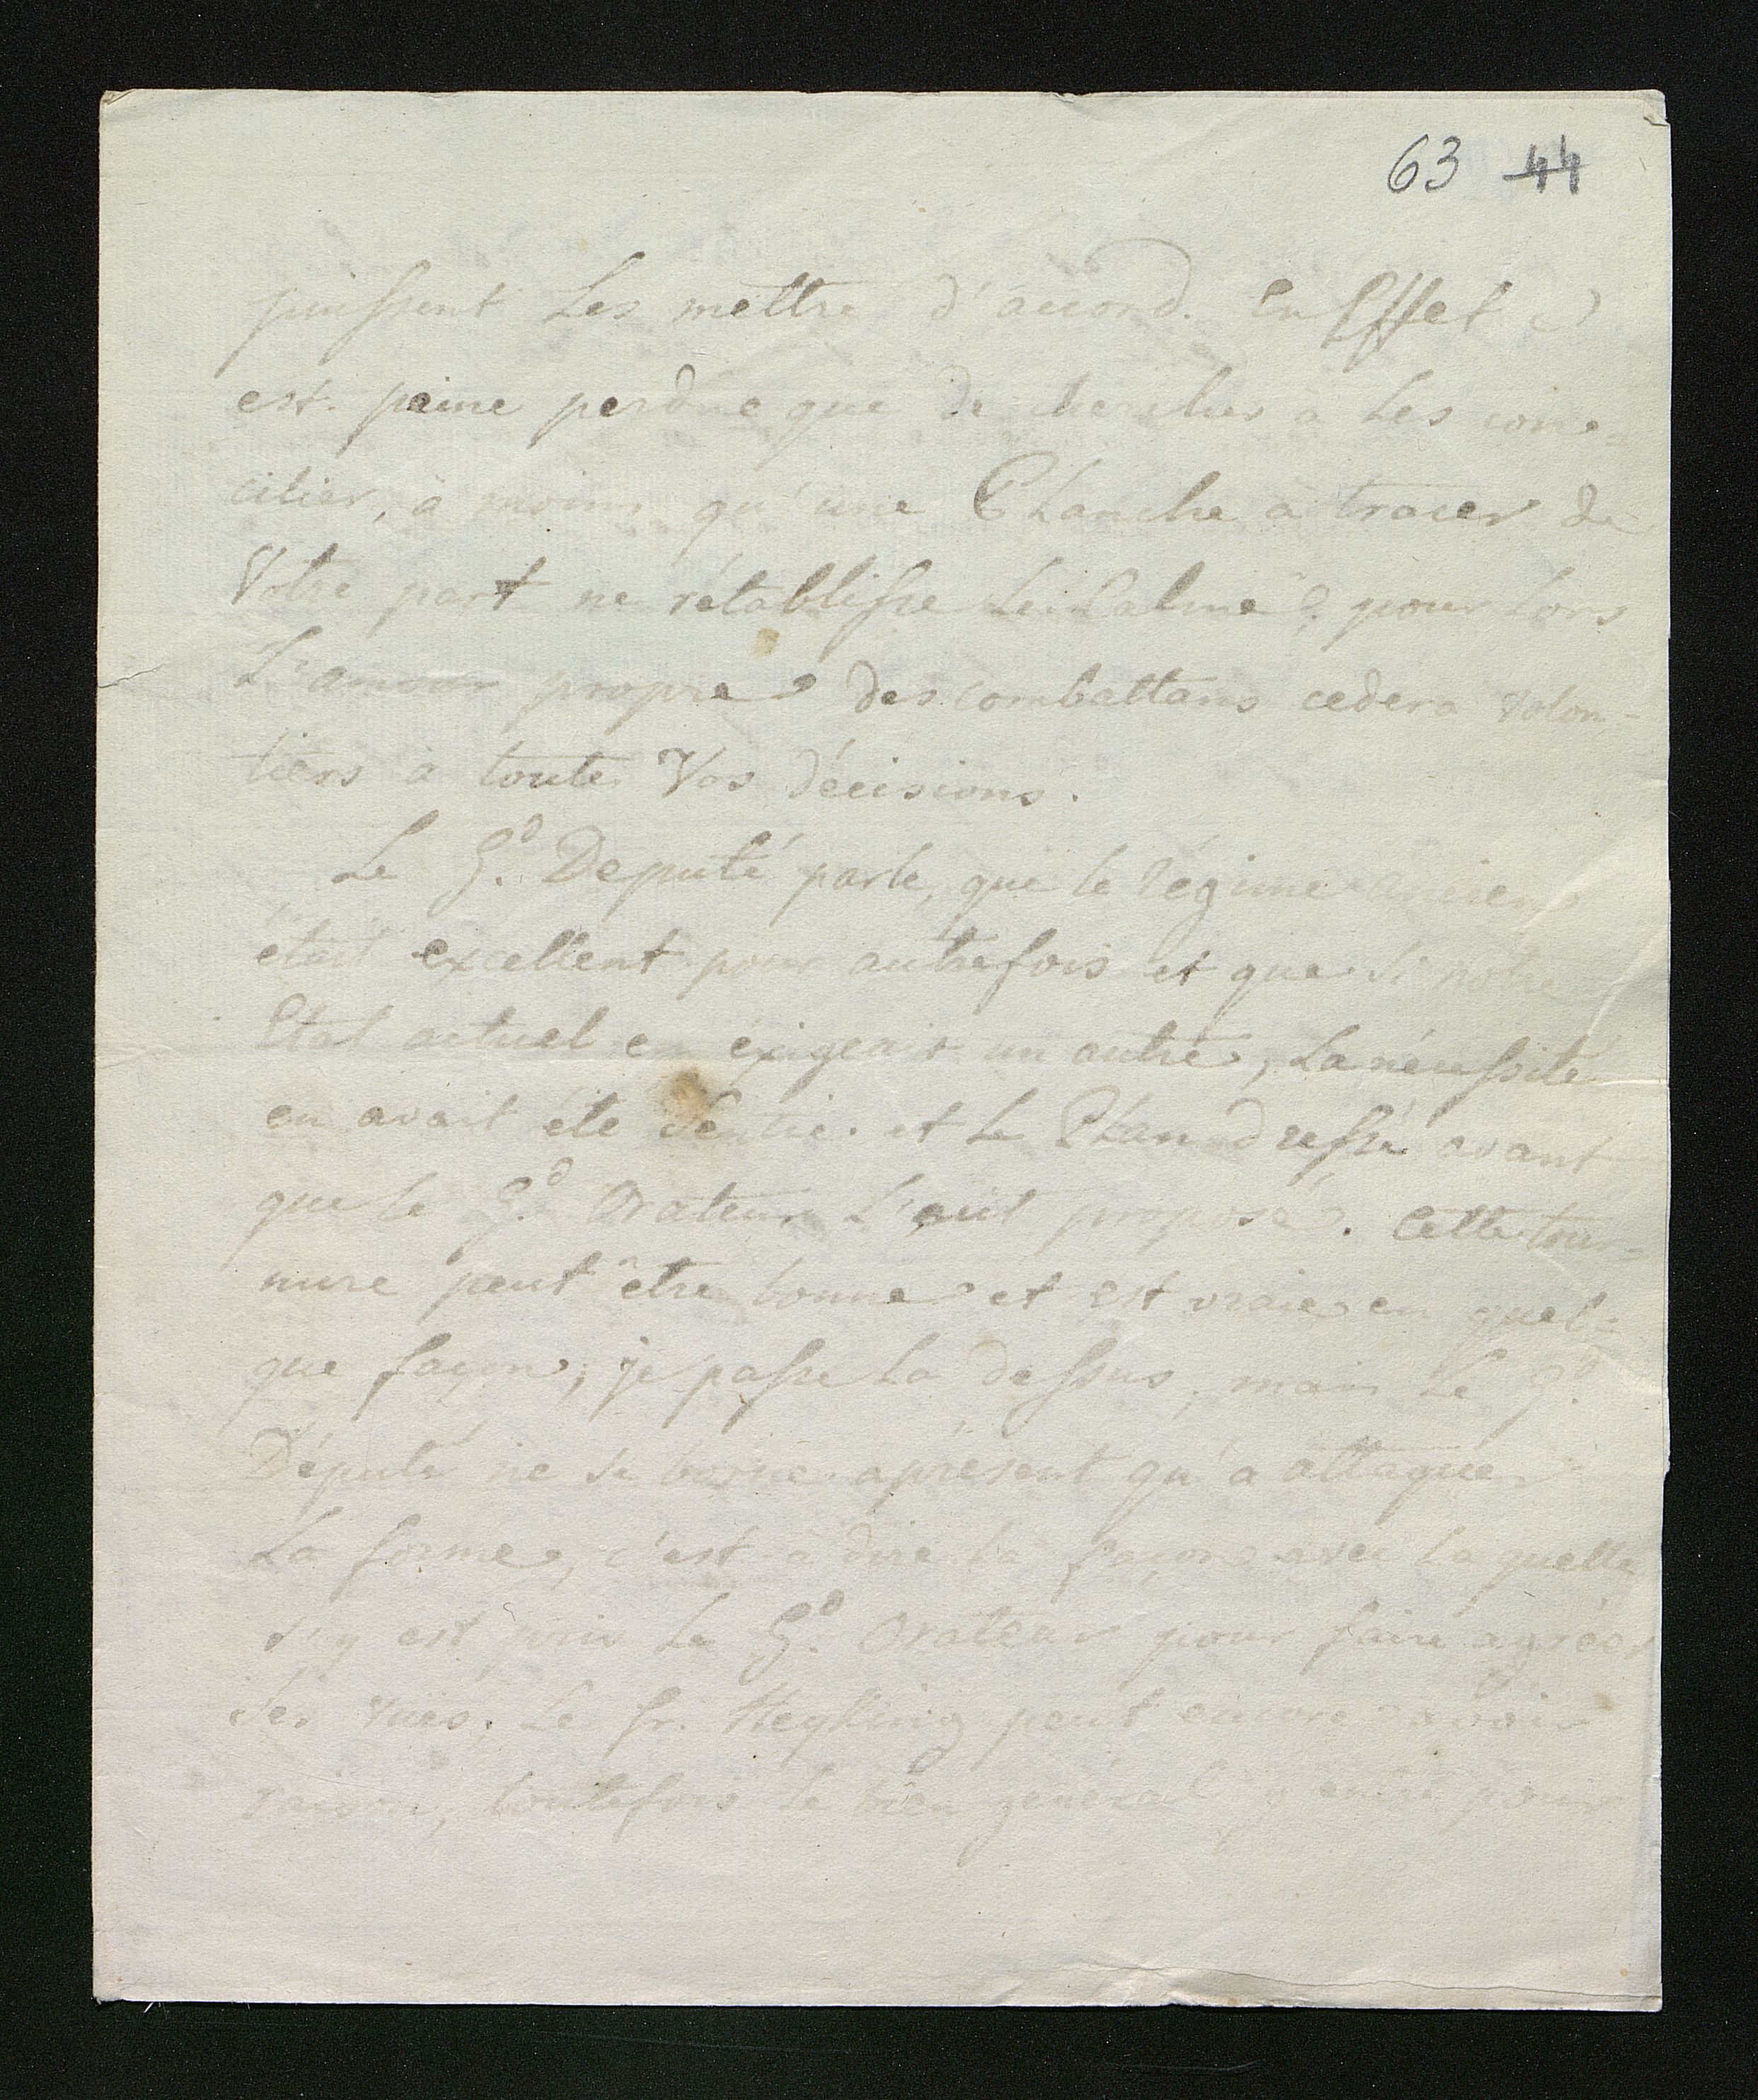 63 44
puissent Les mettre d'accord. En Effet
est peine perdue que de chercher à Les con=
cilier, à moins qu'une Planche à tracer de
Votre part ne rétablisse Le Calme, pour Lors
L'amour propre des combattans cedera volon-
tiers à toute Vos décisions.
Le G.d Deputé parle, que le Régime ancien
était excellent pour autrefois et que si notre
Etat actuel en exigeait un autre, La nécessité
en avait été sentie et Le Plan dressé avant
que le G.d Orateur L'eut proposé. Cette tour=
nure peut être bonne et est vraie en quel=
que façon, je passe La dessus, mais Le G.d
Député ne se borne aprésent qu'à attaquer
La forme, c'est à dire La façon avec La quelle
s'y est pris Le G.d Orateur pour faire agréer
Ses vües. Le fr. Heyking peut encore avoir
raison, toutefois le bien général y entre pour